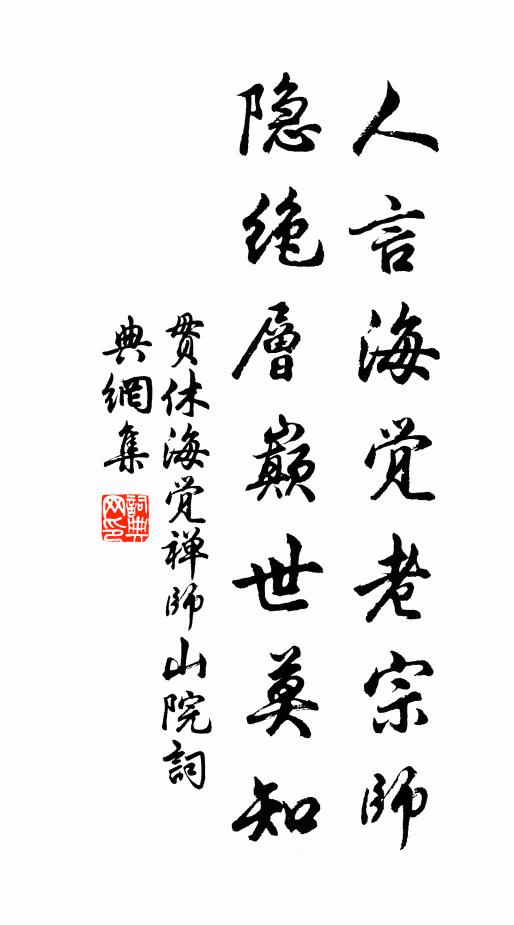 人言海觉老宗师
隐绝层巅世莫知
贯休海觉禅师山院詞
典網集
詞典网印